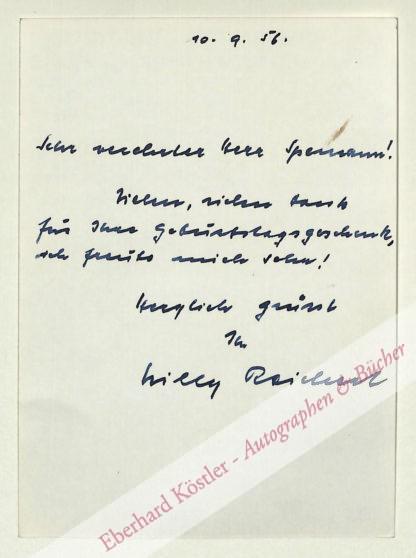 10. 9. 56.
Sehr verehrter Herr Spemann!
Vielen, vielen Dank
für Ihr Geburtstagsgeschenk,
ich freute mich sehr!
Herzlich grüsst
Ihr
Willy Reichert
Eberhard Köstler - Autographen & Bücher